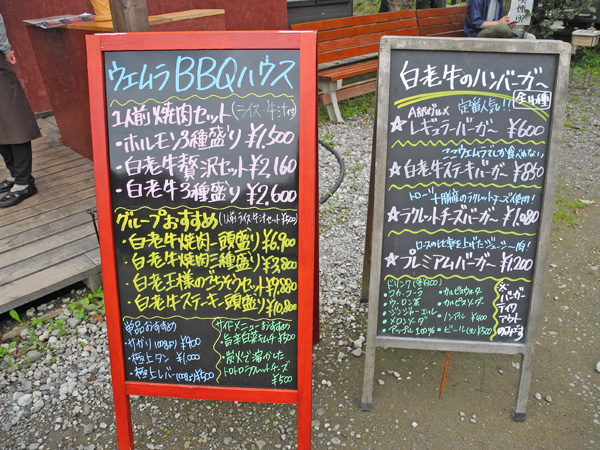 ウエムラBBQハウス
1人前焼肉セット(ライス・牛汁付)
・ホルモン3種盛り ¥1,500
・白老牛贅沢セット ¥2,160
・白老牛3種盛り ¥2,600
グループおすすめ(1人前ライス・牛汁セット¥500)
・白老牛焼肉一頭盛り ¥6,900
・白老牛焼肉三種盛り ¥3,800
・白老王様のごちそうセット ¥9,880
・白老牛ステーキ一頭盛り ¥10,800
単品おすすめ
・サガリ(100g) ¥900
・極上タン ¥1,000
・極上レバー(100g) ¥500
サイドメニューおすすめ
・旨辛白菜キムチ ¥500
・炭火で溶かした
トロトロラクレットチーズ
¥500
白老牛のハンバーガー
全4種
定番人気!!
★レギュラーバーガー ¥600
ここウエムラでしか食べれない
★白老牛ステーキバーガー ¥850
ラクレットチーズ使用!
★ラクレットチーズバーガー ¥1,080
★プレミアムバーガー ¥1,200
ドリンク
・コカ・コーラ
・ウーロン茶
・ジンジャーエール
・メロンソーダ
・アップル100%
・カルピスウォーター
・カルピスソーダ
・ノンアル ¥400
・ビール
バーガー
テイク
アウト